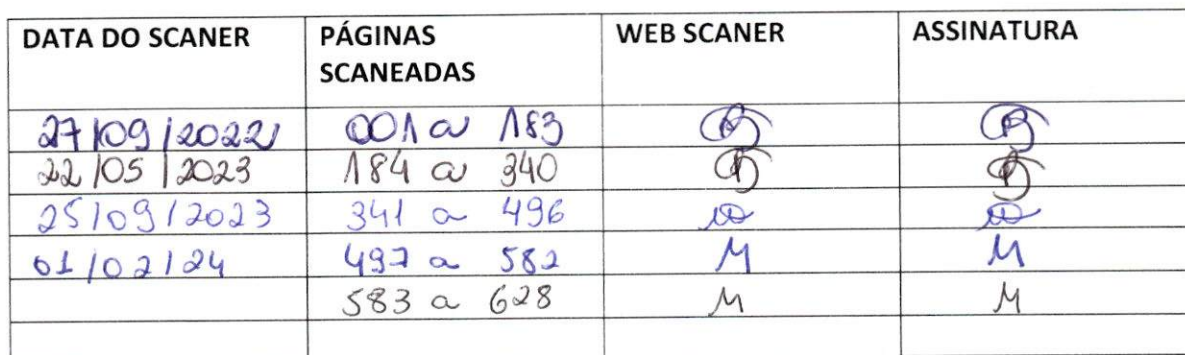 DATA DO SCANER PÁGINAS SCANEADAS WEB SCANER ASSINATURA
27/09/2022 001 a 183
22/05/2023 184 a 340
25/09/2023 341 a 496
01/02/24 497 a 582 M M
583 a 628 M M